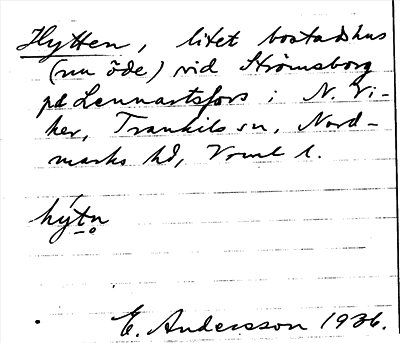 Hytten, litet bostadshus
(nu öde) vid Strömsborg
på Lennartsfors i N. Vi-
ker, Trankils sn, Nord-
marks hd, Vrml l.
hýtn̥
E. Andersson 1936.